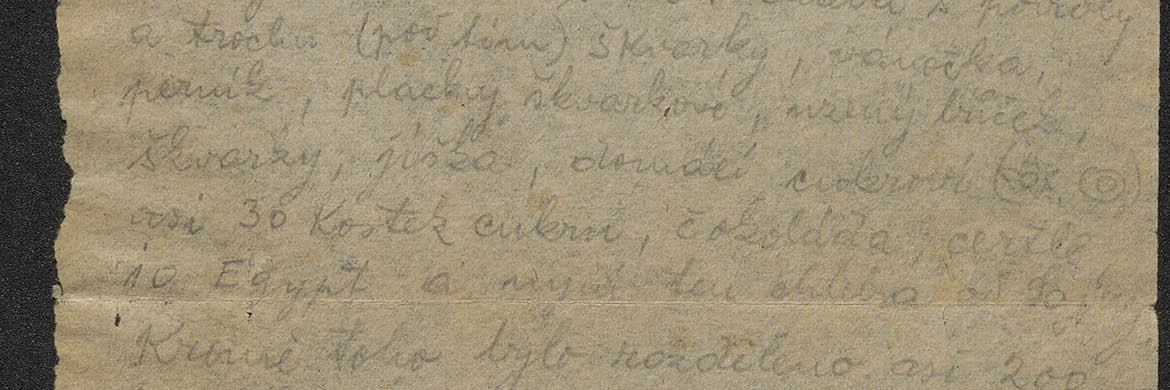 a trochu (pod tím) škvarky, vánočka,
perník, placky škvarkové, uzený bůček,
škvarky, jíška, domácí cukroví
asi 30 kostek cukru, čokoláda,
10 Egypt a chleba
Kromě toho bylo rozděleno asi 200